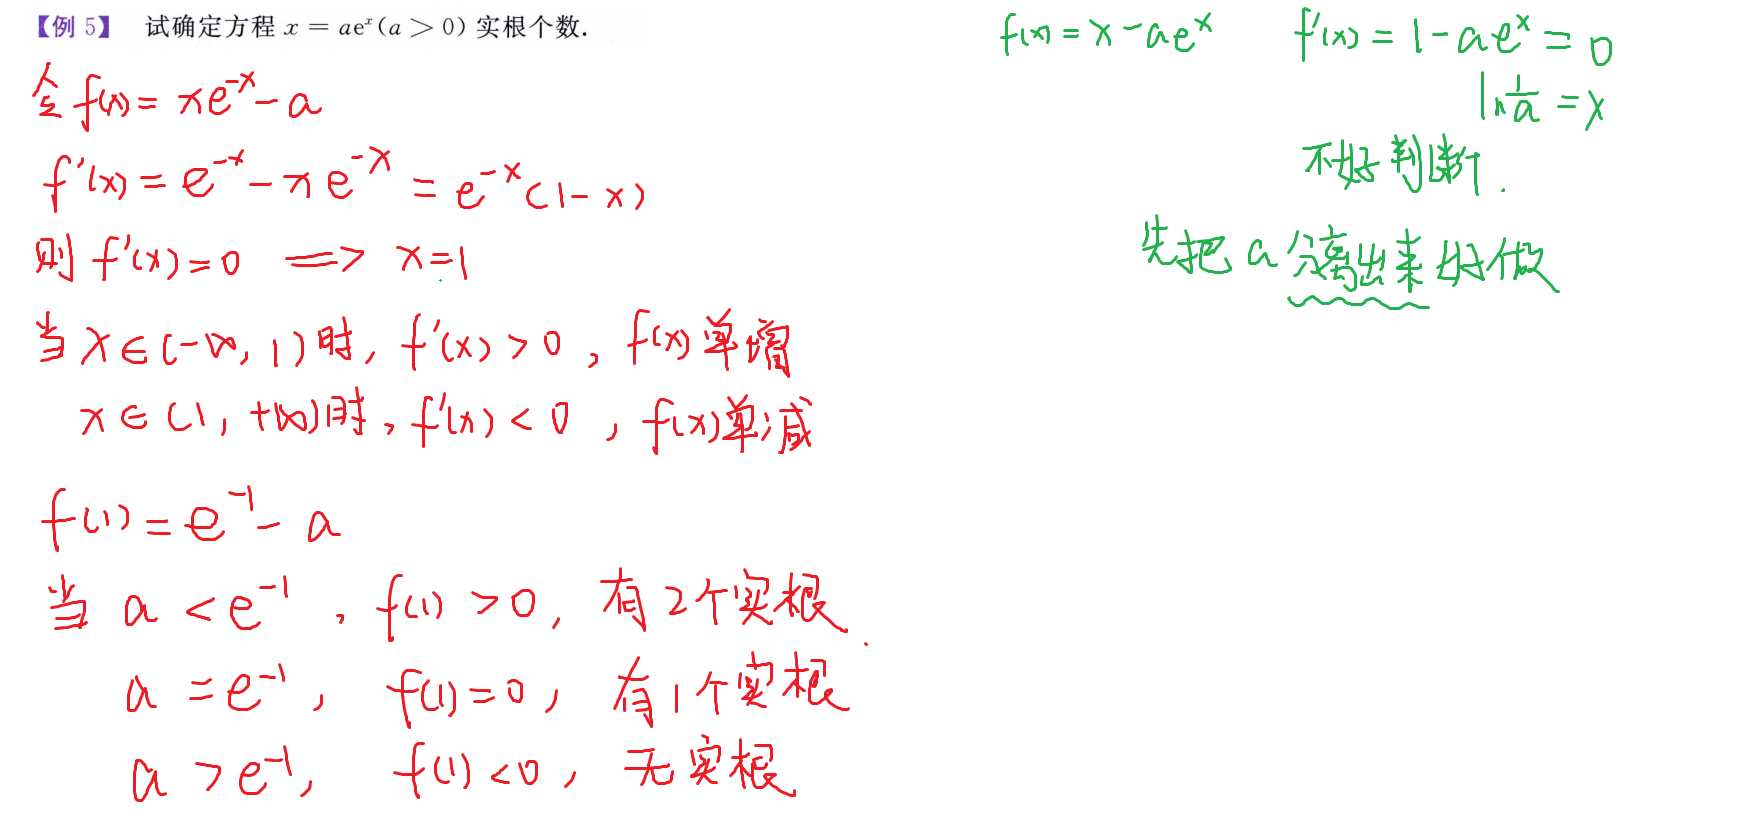 【例 5】 试确定方程 x = aeˣ(a > 0) 实根个数.
令 f(x) = xe⁻ˣ - a
f'(x) = e⁻ˣ - xe⁻ˣ = e⁻ˣ(1-x)
则 f'(x)=0 ⟹ x=1
当 x∈(-∞, 1) 时, f'(x) > 0 , f(x) 单增
x∈(1, +∞)时, f'(x) < 0 , f(x)单减
f(1) = e⁻¹ - a
当 a < e⁻¹ , f(1) > 0, 有2个实根.
a = e⁻¹, f(1) = 0, 有1个实根
a > e⁻¹, f(1) < 0, 无实根
f(x) = x - aeˣ f'(x) = 1 - aeˣ = 0
ln 1/a = x
不好判断.
先把 a 分离出来好做